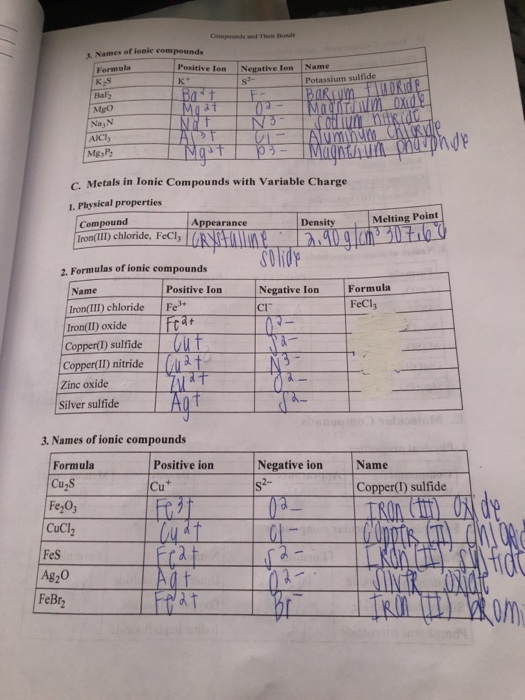 Compounds and Their Bonds
3. Names of ionic compounds
Formula Positive Ion Negative Ion Name
K₂S K⁺ S²⁻ Potassium sulfide
BaF₂ Ba2+ F- Barium fluoride
MgO Mg2+ O2- Magnesium oxide
Na₃N Na+ N3- Sodium nitride
AlCl₃ Al3+ Cl- Aluminum chloride
Mg₃P₂ Mg2+ P3- Magnesium phosphide
C. Metals in Ionic Compounds with Variable Charge
1. Physical properties
Compound Appearance Density Melting Point
Iron(III) chloride, FeCl₃ Crystalline 2.90 g/cm³ 307.6°C
solids
2. Formulas of ionic compounds
Name Positive Ion Negative Ion Formula
Iron(III) chloride Fe³⁺ Cl⁻ FeCl₃
Iron(II) oxide Fe2+ O2-
Copper(I) sulfide Cu+ S2-
Copper(II) nitride Cu2+ N3-
Zinc oxide Zn2+ O2-
Silver sulfide Ag+ S2-
3. Names of ionic compounds
Formula Positive ion Negative ion Name
Cu₂S Cu⁺ S²⁻ Copper(I) sulfide
Fe₂O₃ Fe3+ O2- Iron (III) Oxide
CuCl₂ Cu2+ Cl- Copper (II)
FeS Fe2+ S2- Iron (II) sulfide
Ag₂O Ag+ O2- oxide
FeBr₂ Fe2+ Br- Iron (II) bromi